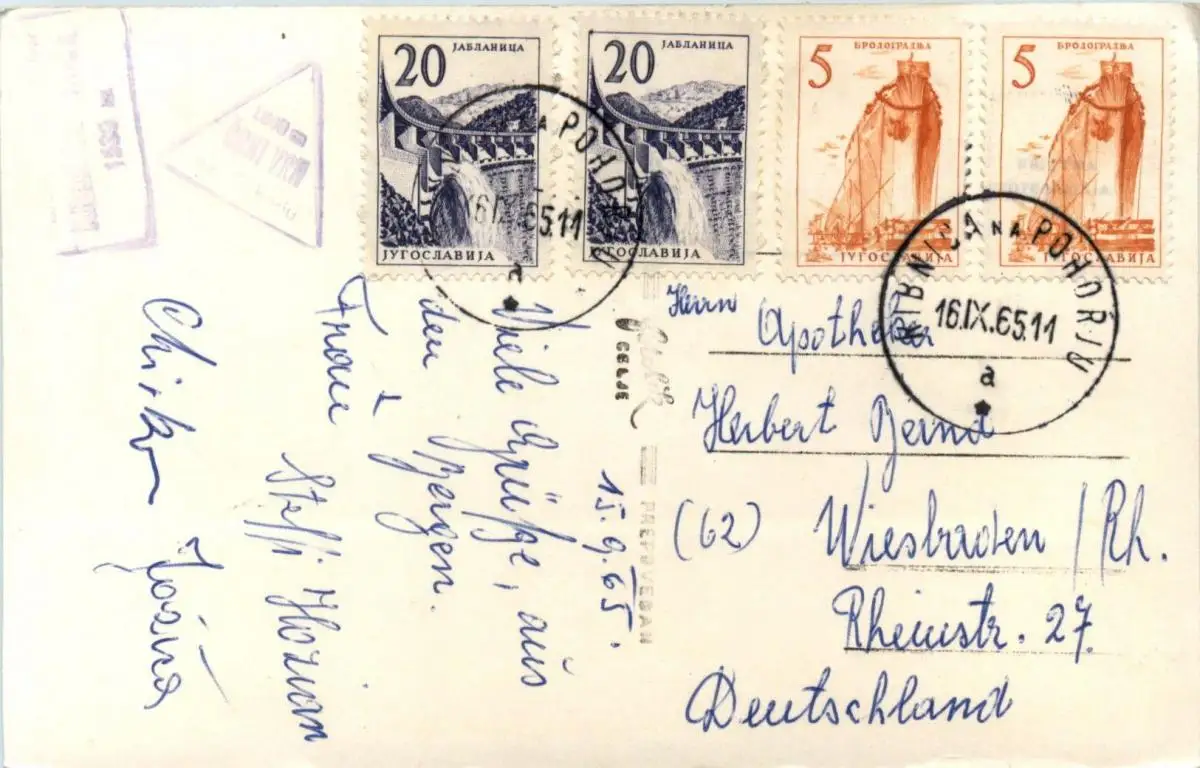 20 ЈАБЛАНИЦА
ЈУГОСЛАВИЈА
20 ЈАБЛАНИЦА
ЈУГОСЛАВИЈА
5 БРОДОГРАДЊА
ЈУГОСЛАВИЈА
5 БРОДОГРАДЊА
ЈУГОСЛАВИЈА
NA POHORJU
16.IX.65.11
a
RIBNICA NA POHORJU
16.IX.65.11
a
15.9.65.
Viele Grüße, aus
den Bergen.
Frau
Steffi
CELJE
PREPOVEDAN
Herrn
Apotheker
Herbert Bernd
(62) Wiesbaden/Rh.
Rheinstr. 27.
Deutschland